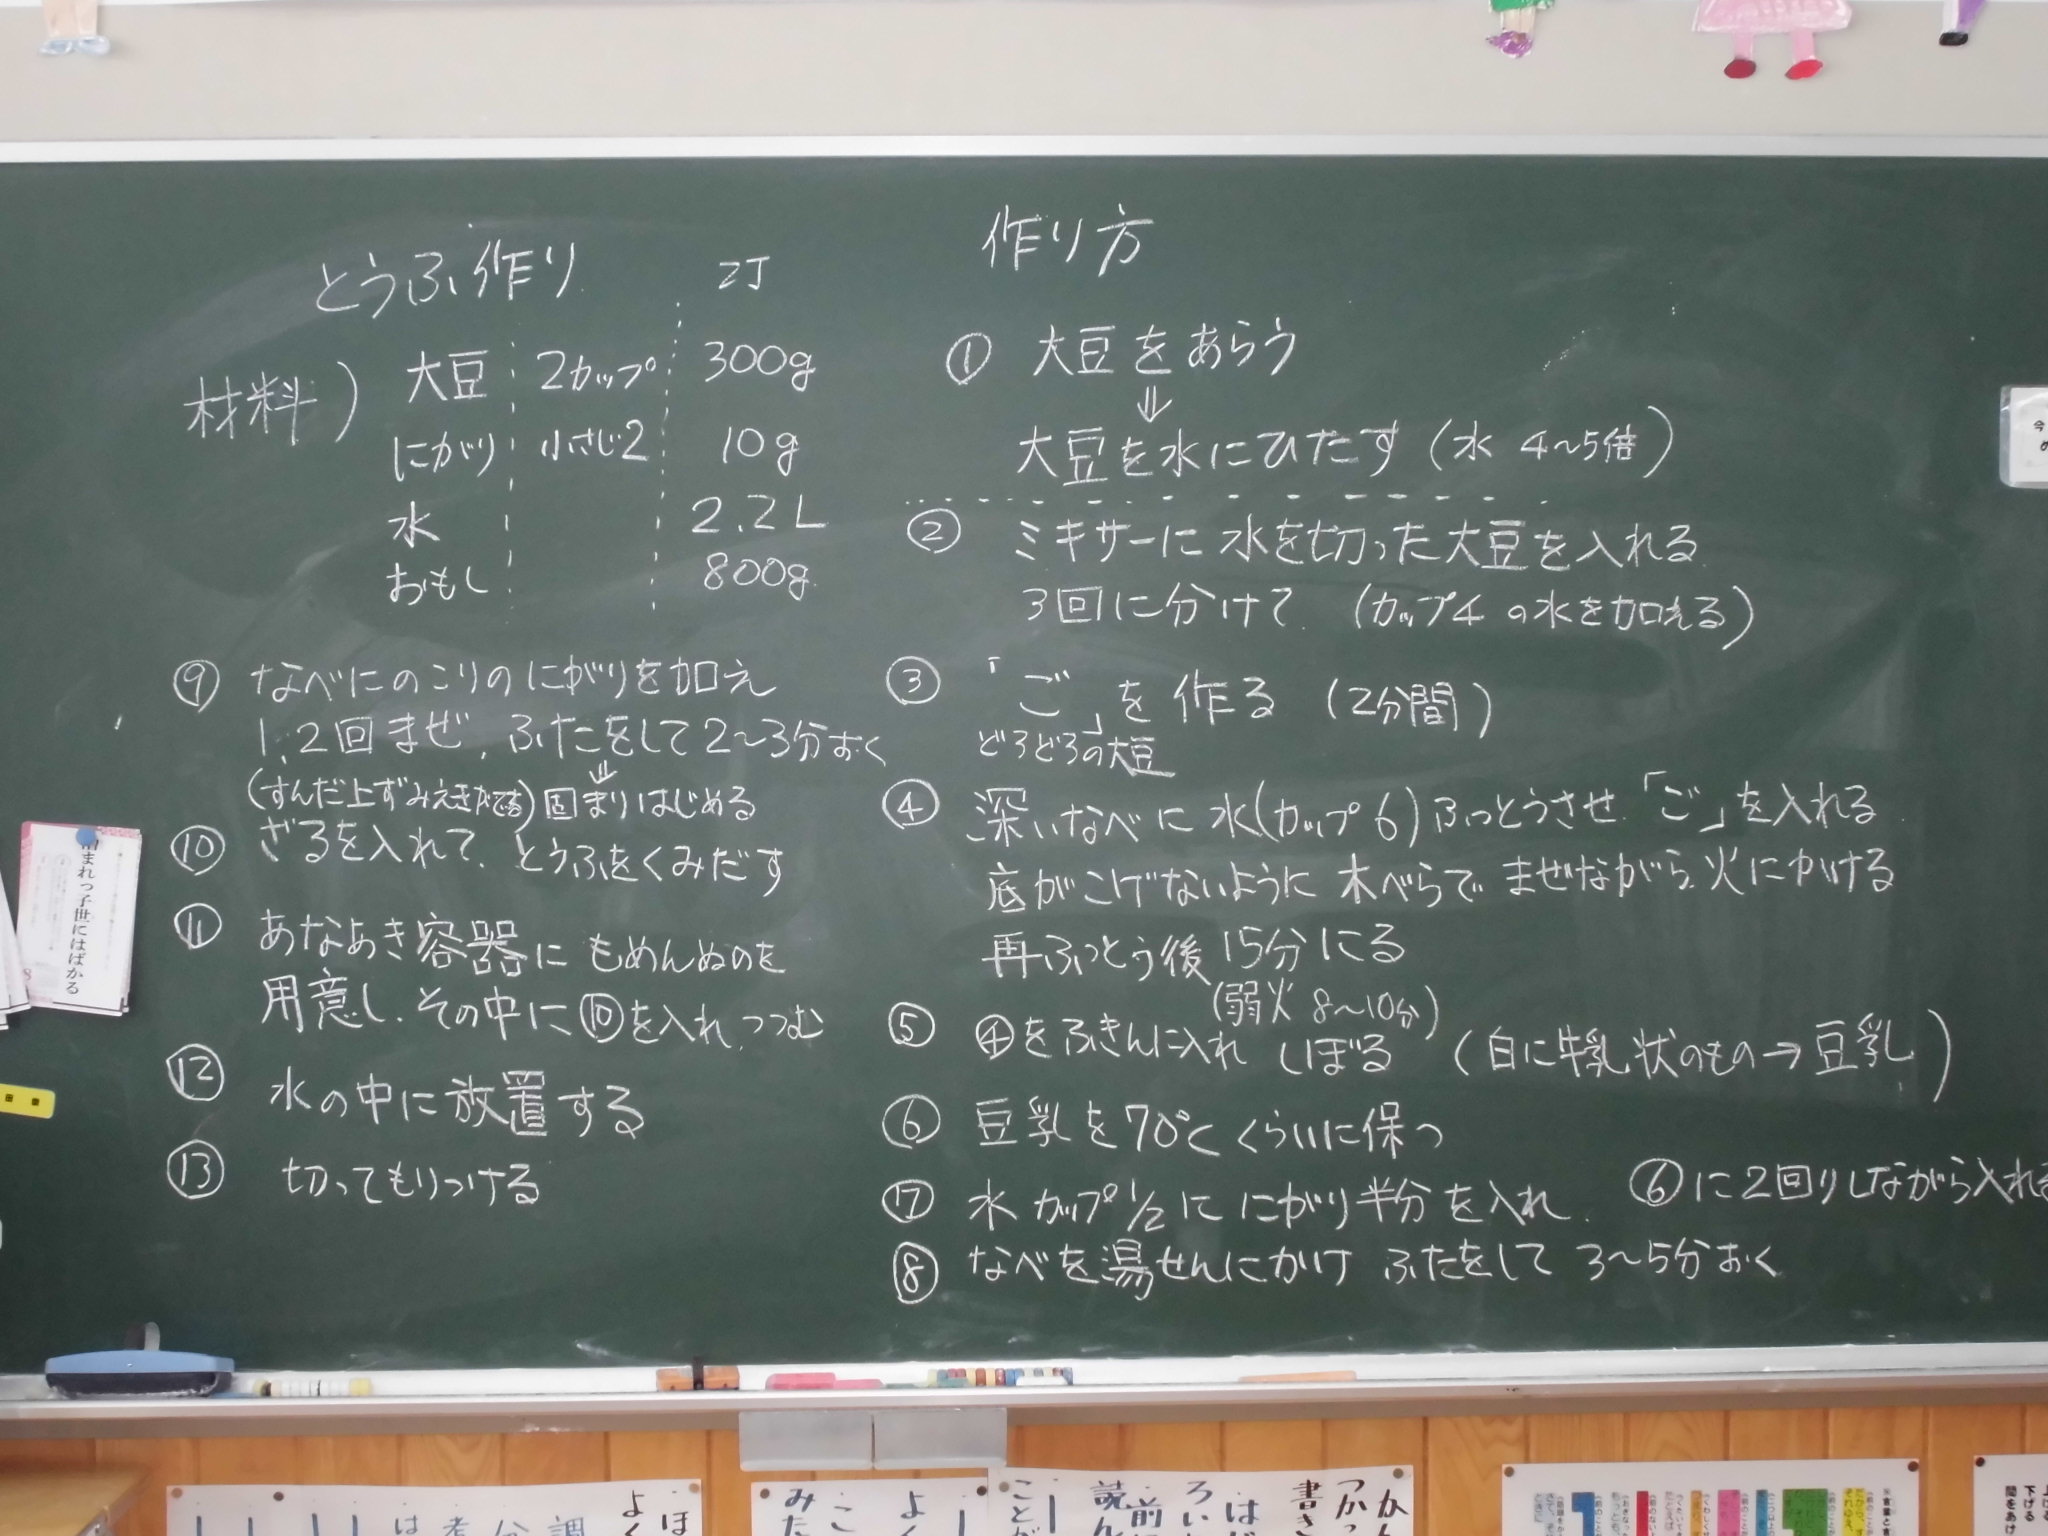 とうふ作り 2丁
材料)
大豆 2カップ 300g
にがり 小さじ2 10g
水 2.2L
おもし 800g
作り方
① 大豆をあらう
⇓
大豆を水にひたす(水 4〜5倍)
② ミキサーに水を切った大豆を入れる
3回に分けて (カップ4の水を加える)
③ 「ご」を作る (2分間)
どろどろの大豆
④ 深いなべに水(カップ6)ふっとうさせ「ご」を入れる
底がこげないように木べらでまぜながら火にかける
再ふっとう後15分にる
(弱火 8〜10分)
⑤ ④をふきんに入れしぼる (白に牛乳状のもの→豆乳)
⑥ 豆乳を70℃くらいに保つ
⑰ 水カップ1/2ににがり半分を入れ ⑥に2回りしながら入れる
⑧ なべを湯せんにかけふたをして3〜5分おく
⑨ なべにのこりのにがりを加え
1,2回まぜ、ふたをして2〜3分おく
⇓
(すんだ上ずみえきができる)固まりはじめる
⑩ ざるを入れて、とうふをくみだす
⑪ あなあき容器にもめんぬのを
用意し、その中に⑩を入れ、つつむ
⑫ 水の中に放置する
⑬ 切ってもりつける
まれっ子世にはばかる